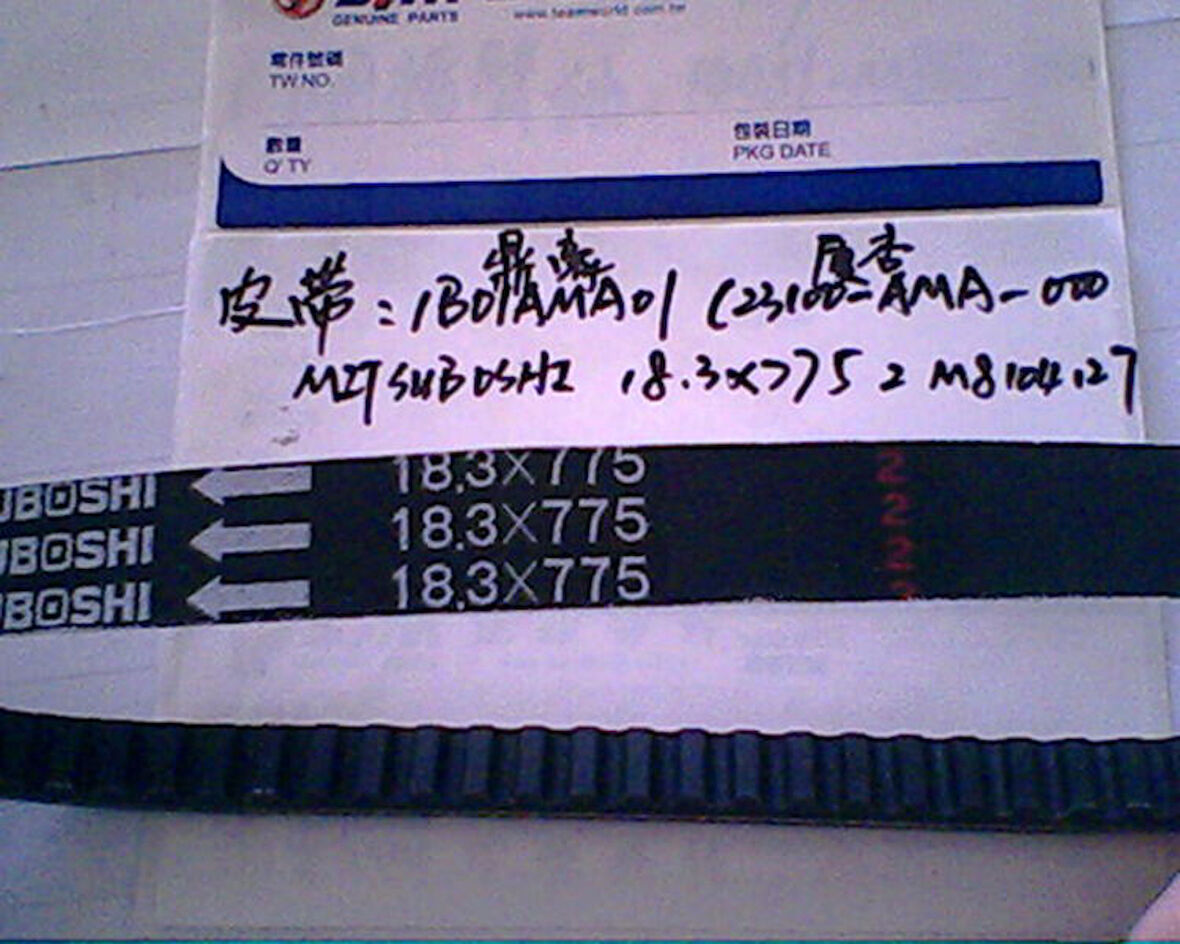 GENUINE PARTS
www.teamworld.com.tw
零件號碼
TW.NO.
數量
Q'TY
包裝日期
PKG DATE
皮帶：1B01AMA01 (23100-AMA-000
MITSUBOSHI 18.3x775 2 M8104127
UBOSHI 18.3X775 2
UBOSHI 18.3X775 2
UBOSHI 18.3X775 2